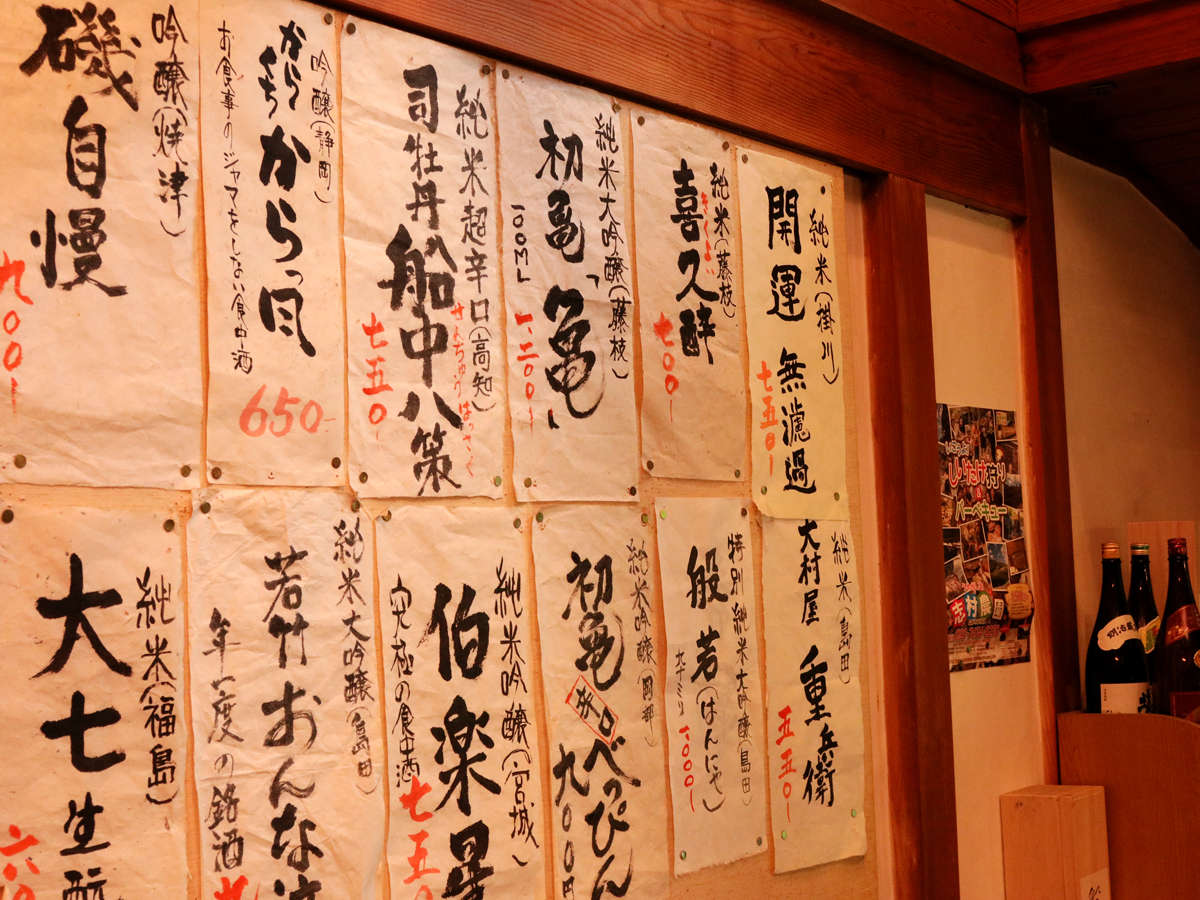 純米(掛川)
開運 無濾過
七五〇-
純米(藤枝)
きくよい
喜久酔
七〇〇-
純米大吟醸(藤枝)
初亀「亀」
100ML
一、二〇〇-
純米超辛口(高知)
司牡丹 船中八策
せんちゅうはっさく
七五〇-
吟醸(静岡)
からくち
からっ風
お食事のジャマをしない食中酒
650-
吟醸(焼津)
磯自慢
九〇〇-
純米(島田)
大村屋 重兵衛
五五〇-
特別純米大吟醸(島田)
般若(はんにゃ)
九十ミリ
1000-
純米吟醸(岡部)
初亀
辛口
べっぴん
九〇〇円
純米吟醸(宮城)
伯楽星
究極の食中酒
七五〇
純米大吟醸(島田)
若竹おんな泣
年一度の銘酒
純米(福島)
大七生酛
六
しいたけ狩り
バーベキュー